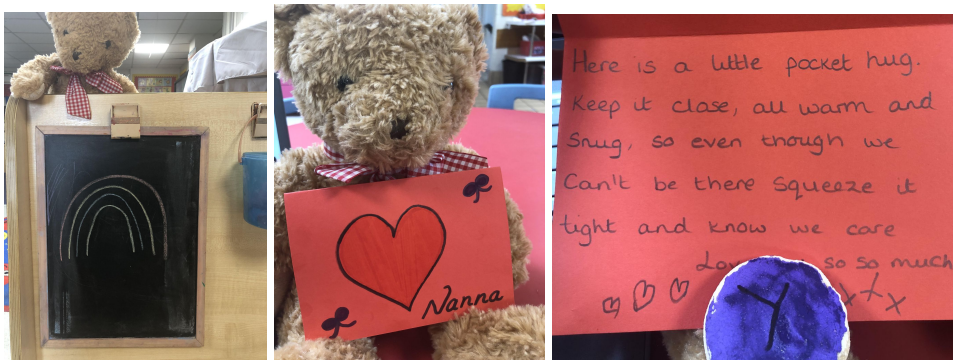 Nanna
Here is a little pocket hug.
Keep it close, all warm and
snug, so even though we
Can't be there squeeze it
tight and know we care
so so much
Y